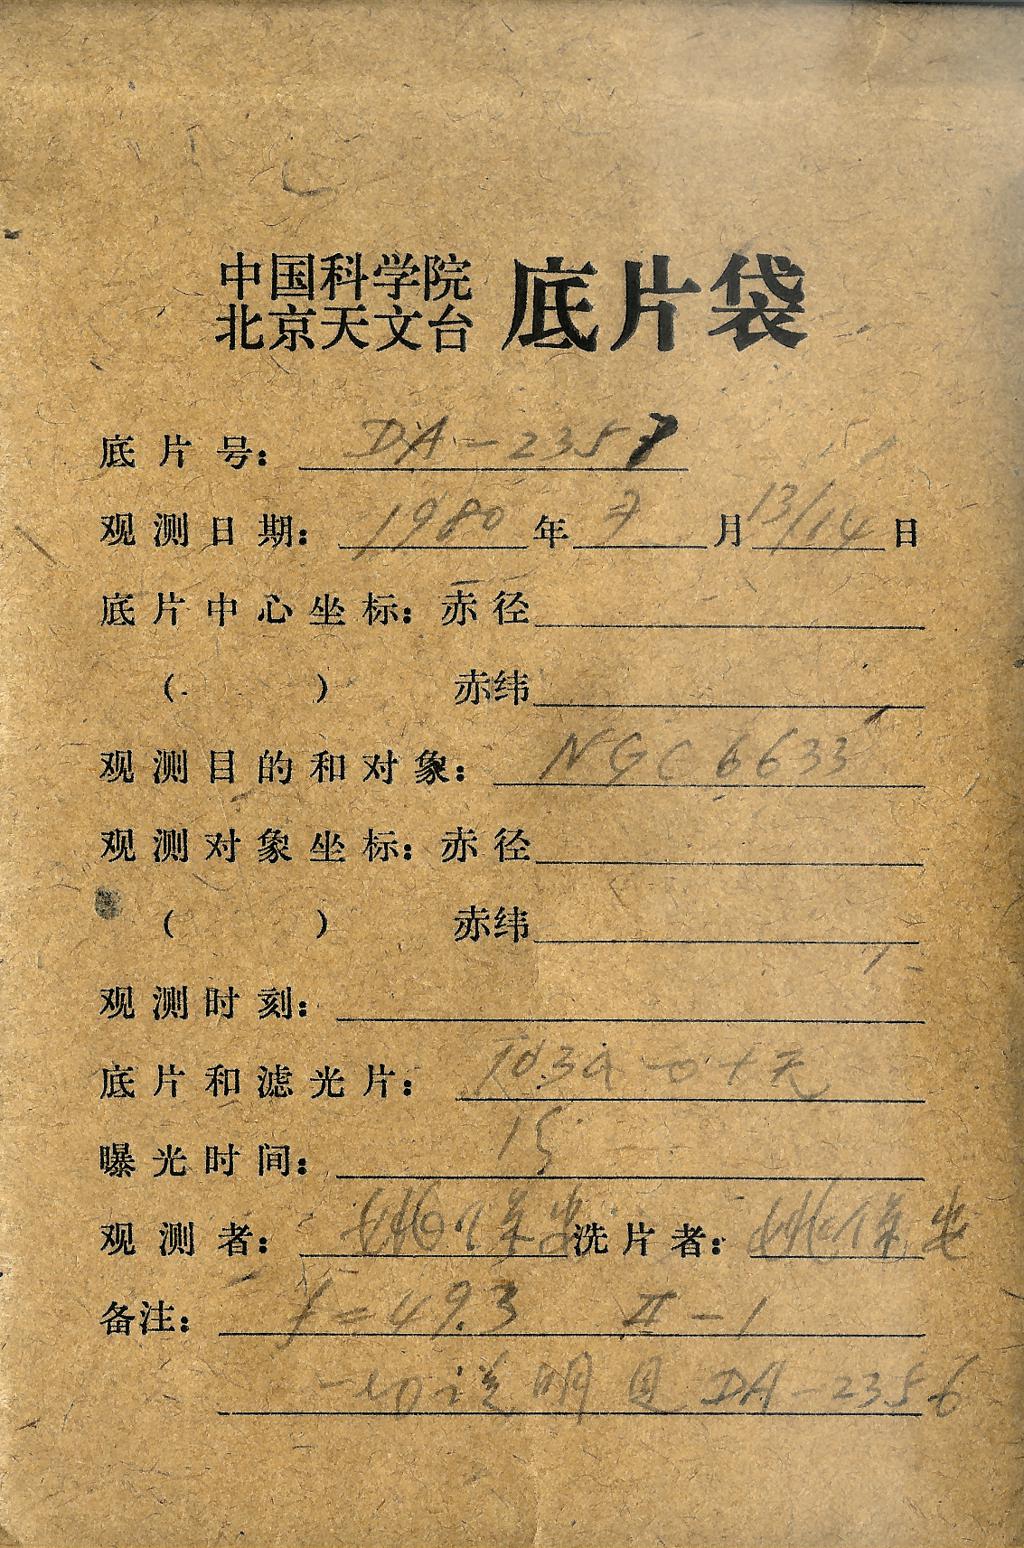 中国科学院
北京天文台 底片袋
底片号: DA-2357
观测日期: 1980年7月13/14日
底片中心坐标: 赤径
( ) 赤纬
观测目的和对象: NGC 6633
观测对象坐标: 赤径
( ) 赤纬
观测时刻:
底片和滤光片: 103a-O+无
曝光时间: 15
观测者: 姚保安 洗片者: 姚保安
备注: f=49.3 II-1
一切说明见 DA-2356